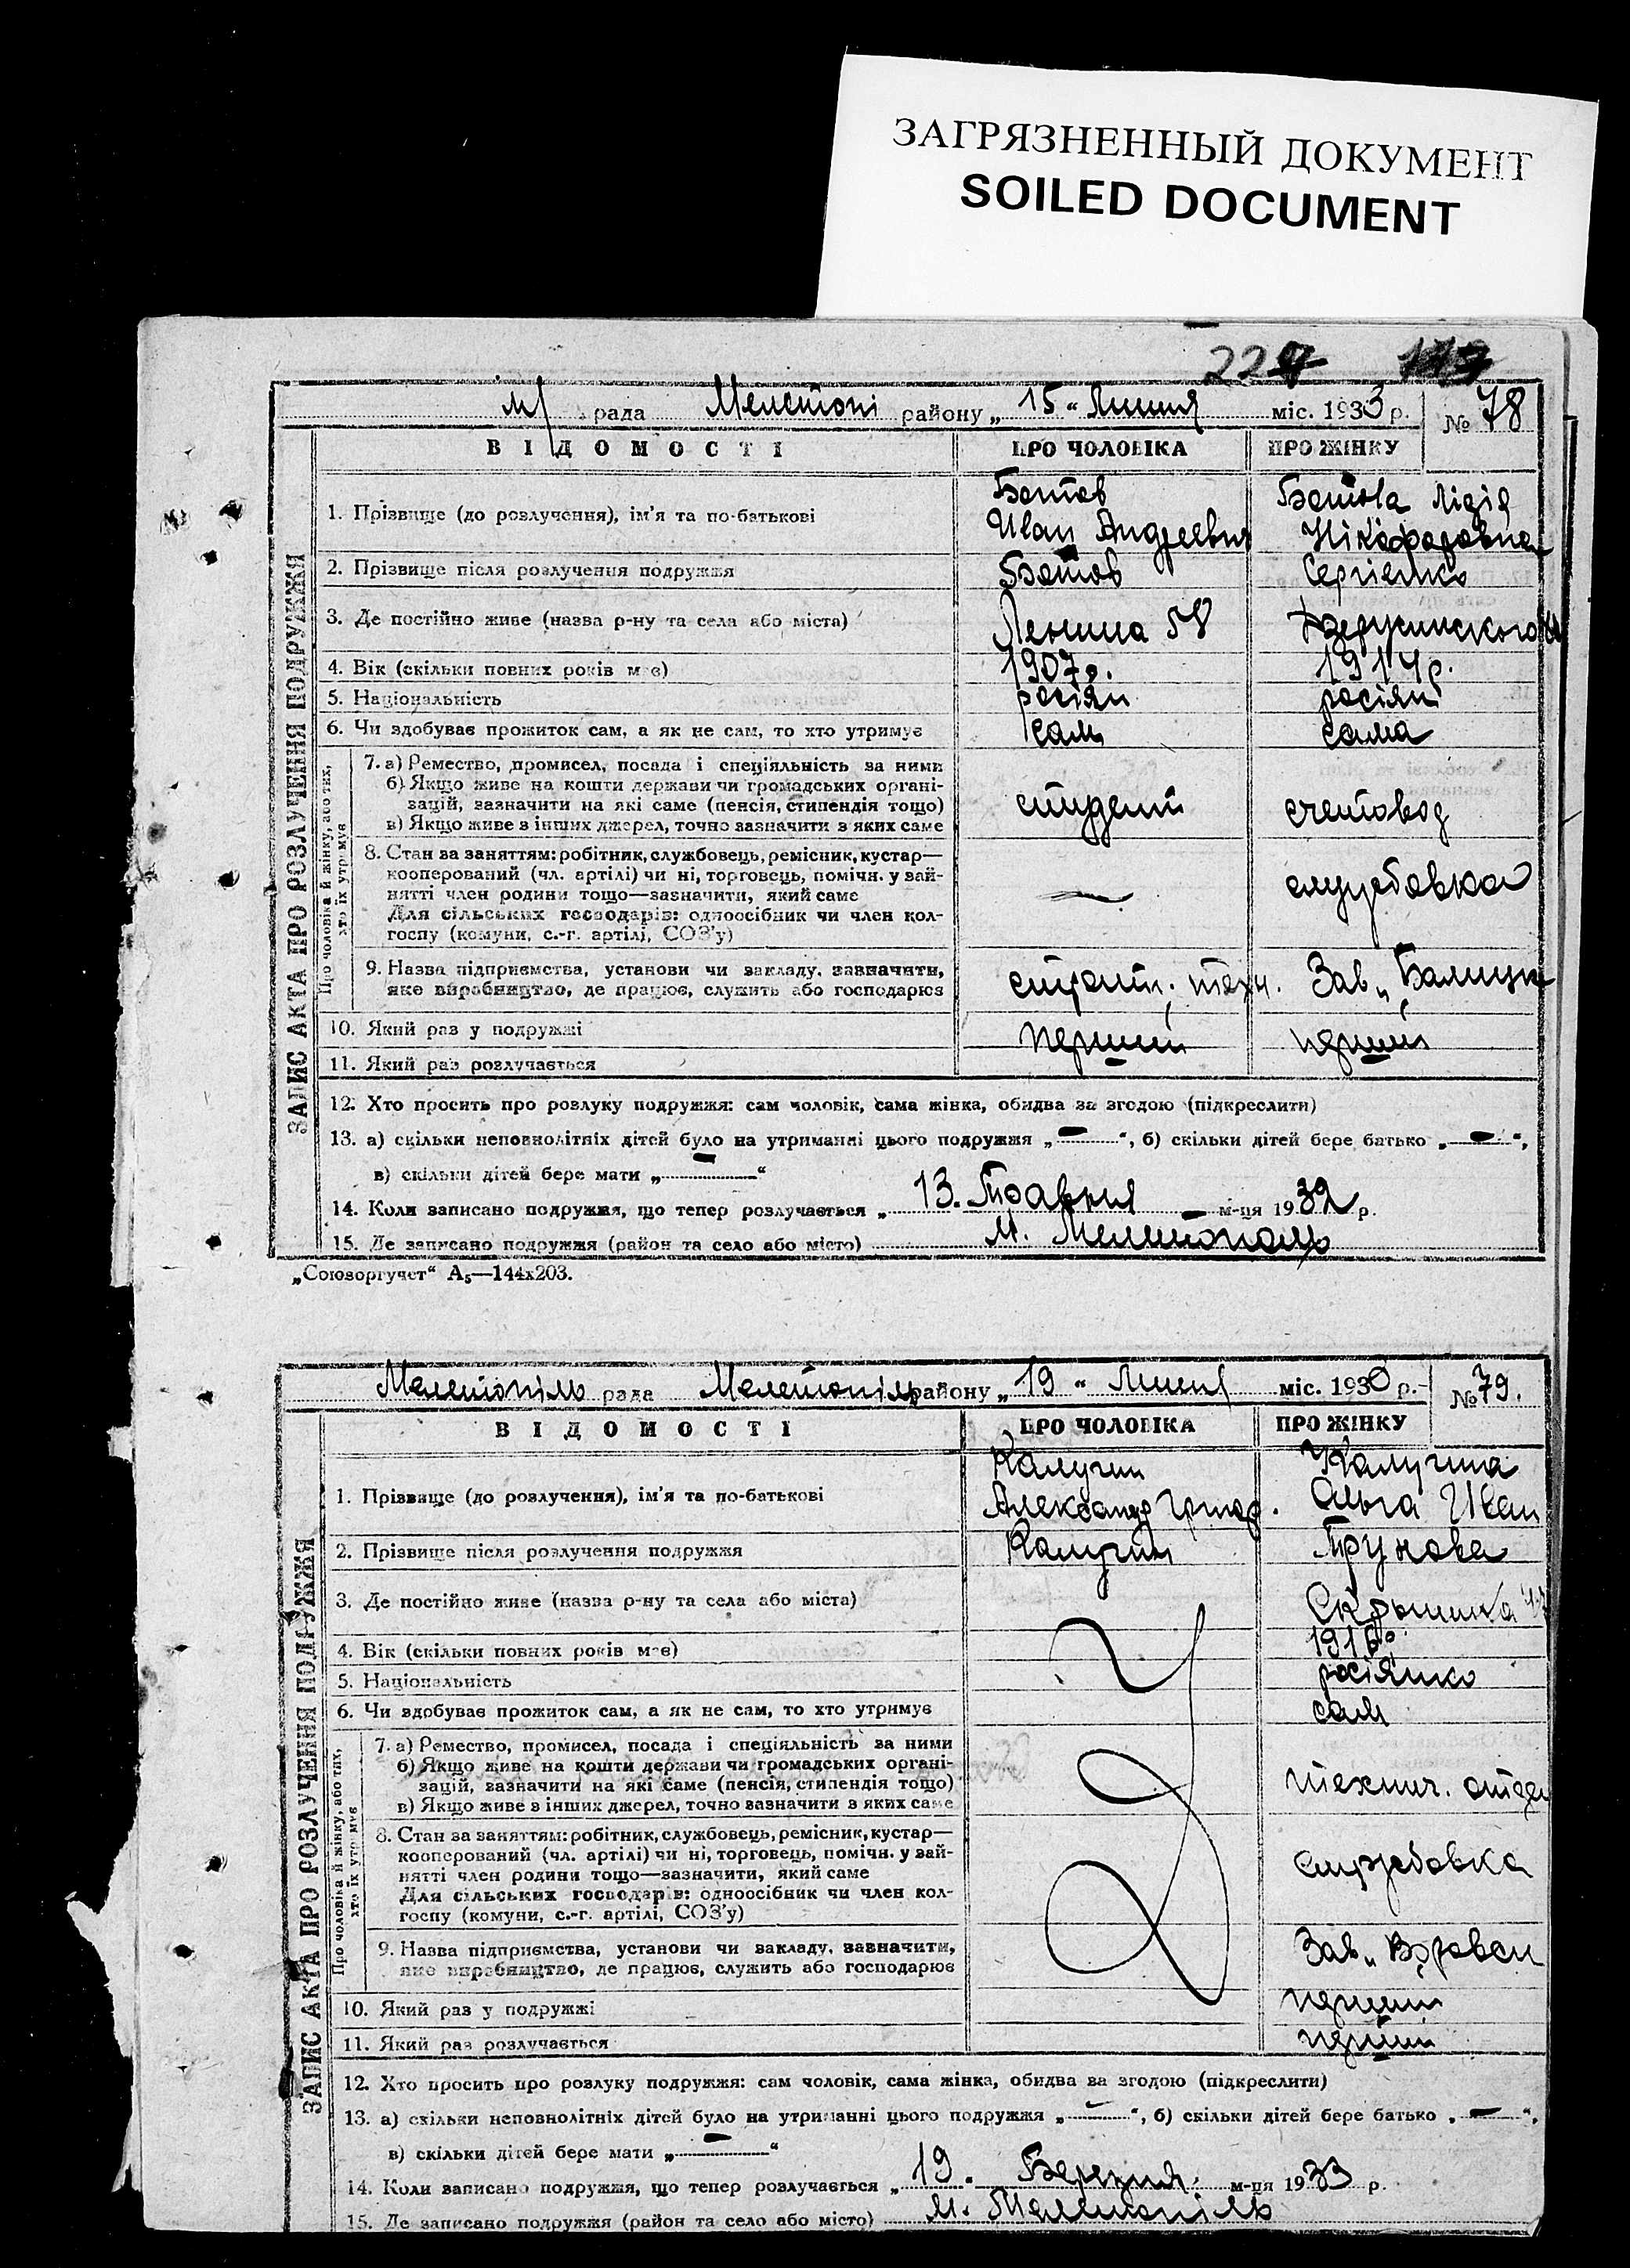 ЗАГРЯЗНЕННЫЙ ДОКУМЕНТ
SOILED DOCUMENT
22
м/ рада Мелітопі району „15“ Липня міс. 1933 р. № 78
ВІДОМОСТІ ПРО ЧОЛОВІКА ПРО ЖІНКУ
ЗАПИС АКТА ПРО РОЗЛУЧЕННЯ ПОДРУЖЖЯ
1. Прізвище (до розлучення), ім'я та по-батькові
Иван Андреевич
Лідія
Нікіфоровна
2. Прізвище після розлучення подружжя Сергієнко
3. Де постійно живе (назва р-ну та села або міста) Ленина 58 Дзержинского
4. Вік (скільки повних років має) 1907 р. 1914 р.
5. Національність росіян росіян
6. Чи здобуває прожиток сам, а як не сам, то хто утримує сам сама
Про чоловіка й жінку, або тих, хто їх утримує
7. а) Ремество, промисел, посада і спеціяльність за ними
б) Якщо живе на кошти держави чи громадських органі-
зацій, зазначити на які саме (пенсія, стипендія тощо) студент счетовод
в) Якщо живе з інших джерел, точно зазначити з яких саме
8. Стан за заняттям: робітник, службовець, ремісник, кустар—
кооперований (чл. артілі) чи ні, торговець, помічн. у зай-
нятті член родини тощо—зазначити, який саме — службовка
Для сільських господарів: одноосібник чи член кол-
госпу (комуни, с.-г. артілі, СОЗ'у)
9. Назва підприємства, установи чи закладу, зазначити,
яке виробництво, де працює, служить або господарює техн. Зав.
10. Який раз у подружжі перший перший
11. Який раз розлучається
12. Хто просить про розлуку подружжя: сам чоловік, сама жінка, обидва за згодою (підкреслити)
13. а) скільки неповнолітніх дітей було на утриманні цього подружжя „—“, б) скільки дітей бере батько „—“,
в) скільки дітей бере мати „—“
14. Коли записано подружжя, що тепер розлучається „13. Травня м-ця 1932 р.
15. Де записано подружжя (район та село або місто) м.
„Союзоргучет“ А₅—144х203.
Мелітопіль рада Мелітопіль району „19“ Липня міс. 1930 р. № 79.
ВІДОМОСТІ ПРО ЧОЛОВІКА ПРО ЖІНКУ
ЗАПИС АКТА ПРО РОЗЛУЧЕННЯ ПОДРУЖЖЯ
Калугин Калугина
1. Прізвище (до розлучення), ім'я та по-батькові Александр Григор. Ольга Иван
2. Прізвище після розлучення подружжя Калугин Трунова
3. Де постійно живе (назва р-ну та села або міста)
4. Вік (скільки повних років має)
5. Національність росіянко
6. Чи здобуває прожиток сам, а як не сам, то хто утримує сам
Про чоловіка й жінку, або тих, хто їх утримує
7. а) Ремество, промисел, посада і спеціяльність за ними
б) Якщо живе на кошти держави чи громадських органі-
зацій, зазначити на які саме (пенсія, стипендія тощо) технич.
в) Якщо живе з інших джерел, точно зазначити з яких саме
8. Стан за заняттям: робітник, службовець, ремісник, кустар—
кооперований (чл. артілі) чи ні, торговець, помічн. у зай-
нятті член родини тощо—зазначити, який саме службовка
Для сільських господарів: одноосібник чи член кол-
госпу (комуни, с.-г. артілі, СОЗ'у)
9. Назва підприємства, установи чи закладу, зазначити,
яке виробництво, де працює, служить або господарює Зав.
10. Який раз у подружжі перший
11. Який раз розлучається перший
12. Хто просить про розлуку подружжя: сам чоловік, сама жінка, обидва за згодою (підкреслити)
13. а) скільки неповнолітніх дітей було на утриманні цього подружжя „—“, б) скільки дітей бере батько „—“,
в) скільки дітей бере мати „—“
14. Коли записано подружжя, що тепер розлучається „19. Березня м-ця 1933 р.
15. Де записано подружжя (район та село або місто) м. Мелітопіль